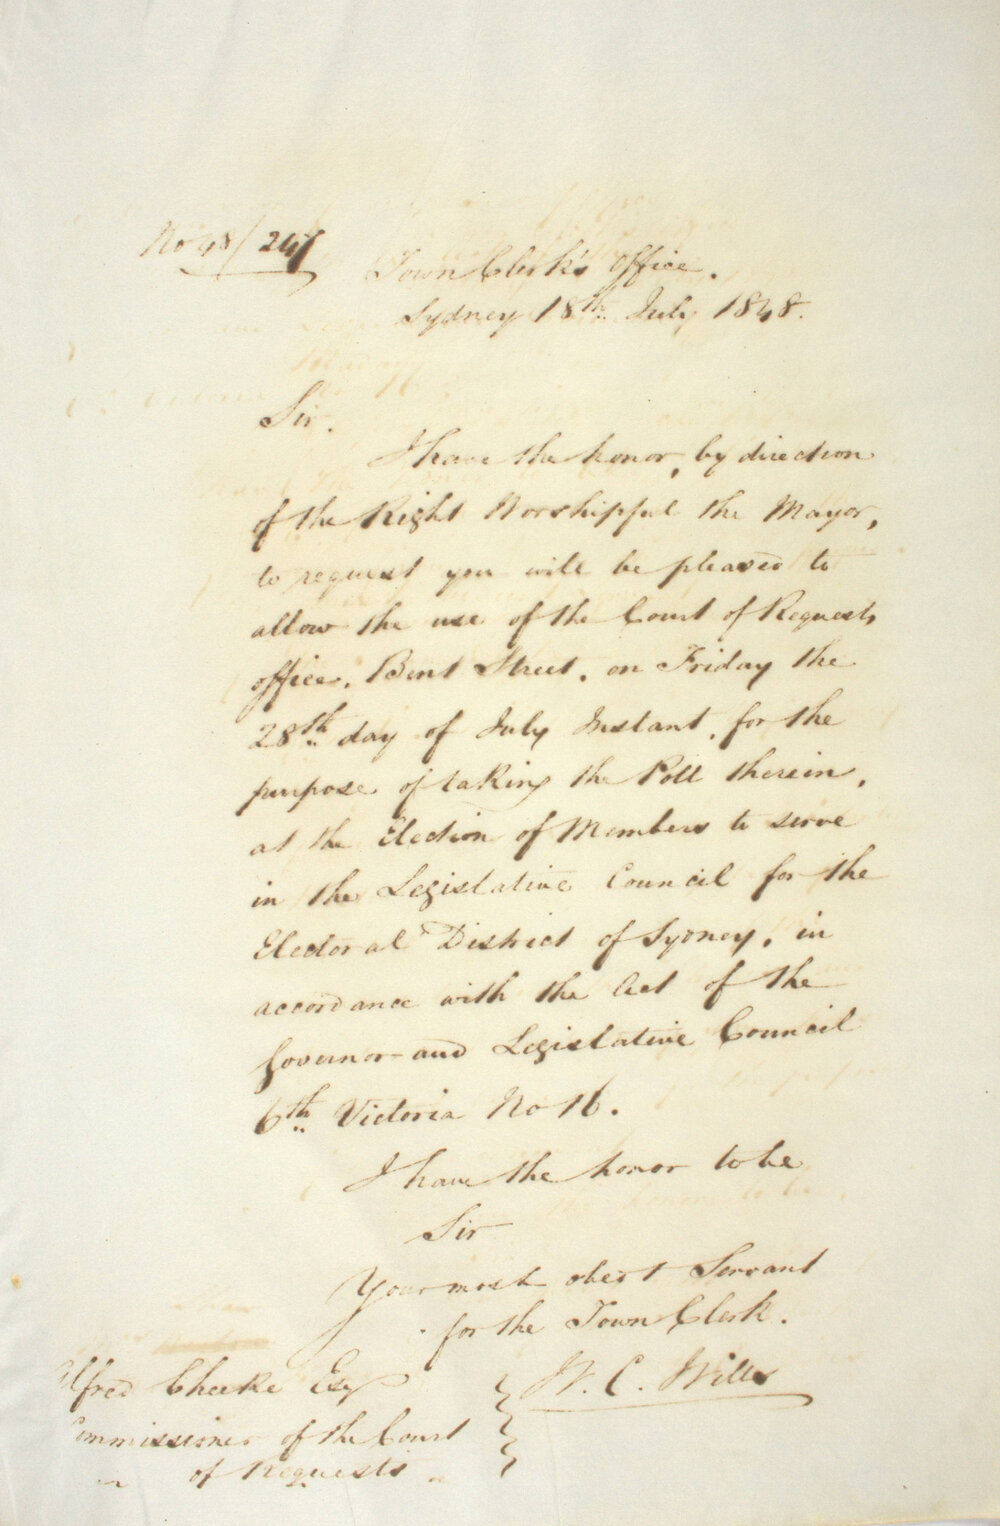 No 48/247
Town Clerk's Office.
Sydney 18th July 1848.
Sir.
I have the honor, by direction
of the Right Worshipful the Mayor,
to request you will be pleased to
allow the use of the Court of Requests
office, Bent Street, on Friday the
28th day of July Instant, for the
purpose of taking the Poll therein,
at the Election of Members to serve
in the Legislative Council for the
Electoral District of Sydney, in
accordance with the Act of the
Governor and Legislative Council
6th Victoria No 16.
I have the honor to be
Sir
Your most obedt Servant
for the Town Clerk.
W. C. Wills
Alfred Cheeke Esq
Commissioner of the Court
" of Requests "